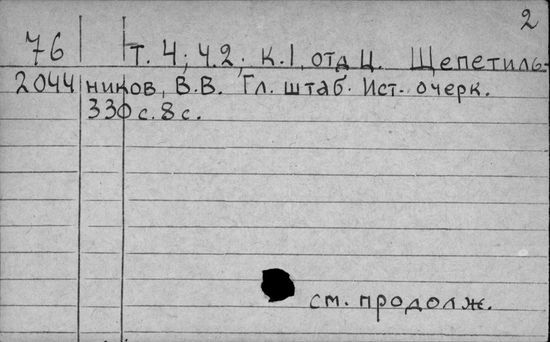 2
76 Т. 4; Ч.2; К.1, отд Ц. Щепетиль-
2044 ников, В.В. Гл. штаб. Ист. очерк.
330 с. 8 с.
см. продолж.